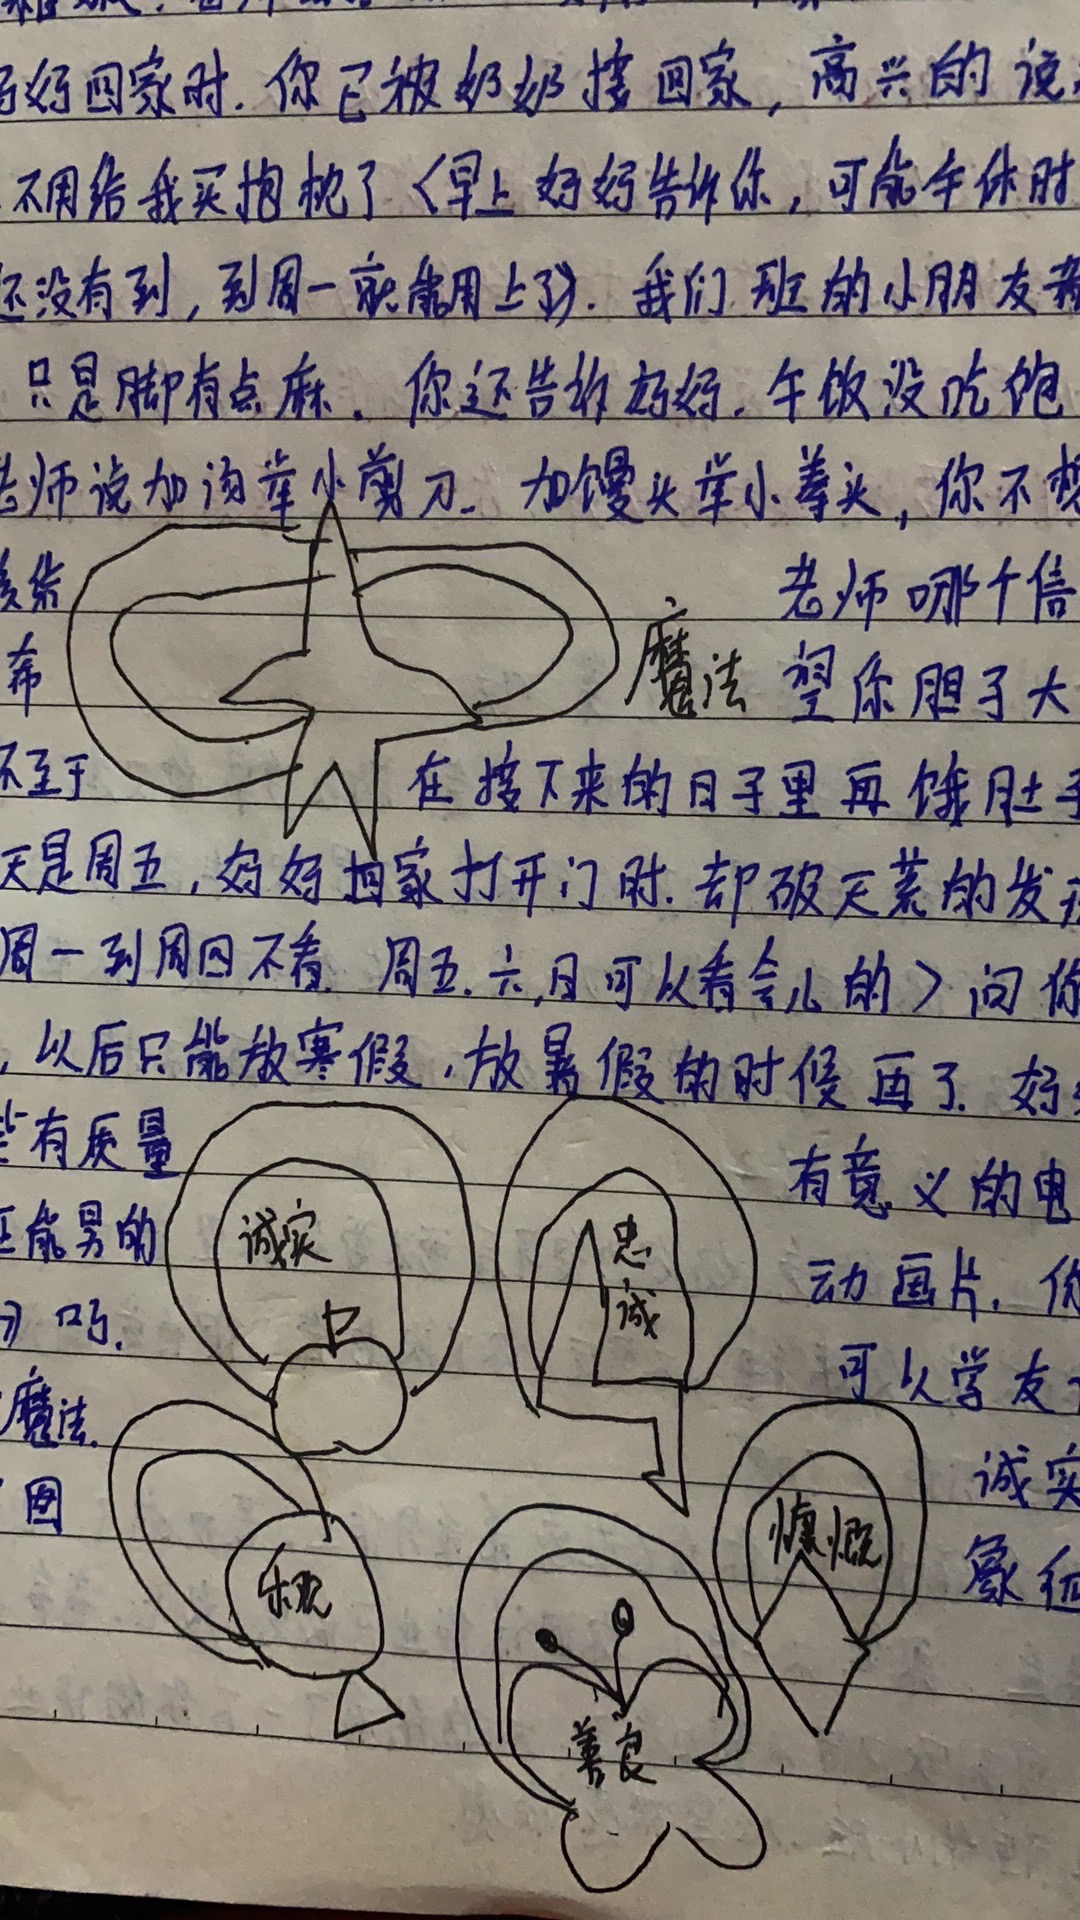 妈妈回家时.你已被奶奶接回家,高兴的说
不用给我买抱枕了〈早上妈妈告诉你,可能午休时
还没有到,到周一就能用上了》.我们班的小朋友都
只是脚有点麻.你还告诉妈妈.午饭没吃饱
老师说加汤举小剪刀.加馒头举小拳头,你不想
老师哪个信
希 魔法 望你胆子大
不至于 在接下来的日子里再饿肚子
天是周五,妈妈回家打开门时.却破天荒的发现
周一到周四不看.周五.六,日可以看会儿的〉问你
,以后只能放寒假.放暑假的时候再了.妈妈
些有质量 有意义的电
还能男的 诚实 忠诚 动画片.你
吗. 可以学友
魔法. 诚实
图 乐观 慷慨 象征
善良